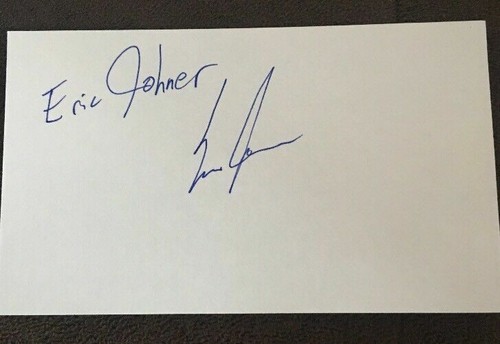 Eric Johner